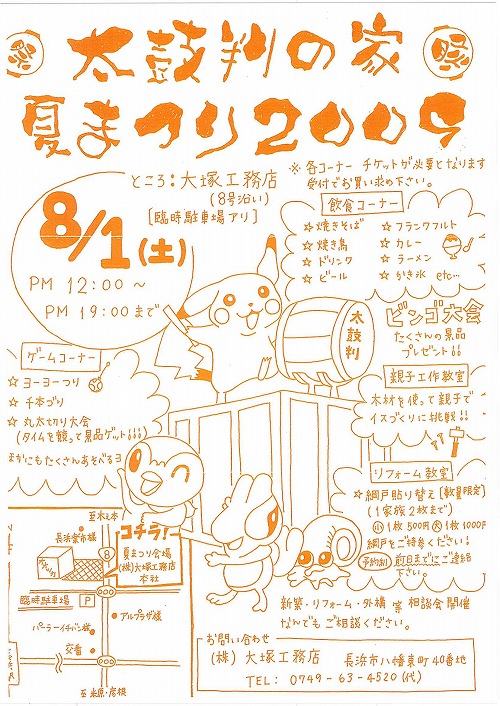 太鼓判の家
夏まつり2009
ところ:大塚工務店
(8号沿い)
[臨時駐車場アリ]
※各コーナー チケットが必要となります
受付でお買い求め下さい。
8/1(土)
PM 12:00〜
PM 19:00まで
飲食コーナー
☆焼きそば
☆焼き鳥
☆ドリンク
☆ビール
☆フランクフルト
☆カレー
☆ラーメン
☆かき氷 etc…
太鼓判
ビンゴ大会
たくさんの景品
プレゼント!!
ゲームコーナー
☆ヨーヨーつり
☆千本づり
☆丸太切り大会
(タイムを競って景品ゲット!!!)
ほかにもたくさんあそべるヨ
親子工作教室
木材を使って親子で
イスづくりに挑戦!!
リフォーム教室
☆網戸貼り替え[数量限定]
(1家族2枚まで)
小1枚500円 大1枚1000円
網戸をご持参ください!
予約制 前日までにご連絡
下さい。
至木之本
長浜楽市様
コチラ!
8
夏まつり会場
(株)大塚工務店
本社
臨時駐車場 P
アルプラザ様
パーラーイチバン様
交番
至米原・彦根
新築・リフォーム・外構 等 相談会開催
なんでもご相談ください。
お問い合わせ
(株)大塚工務店 長浜市八幡東町40番地
TEL: 0749-63-4520(代)